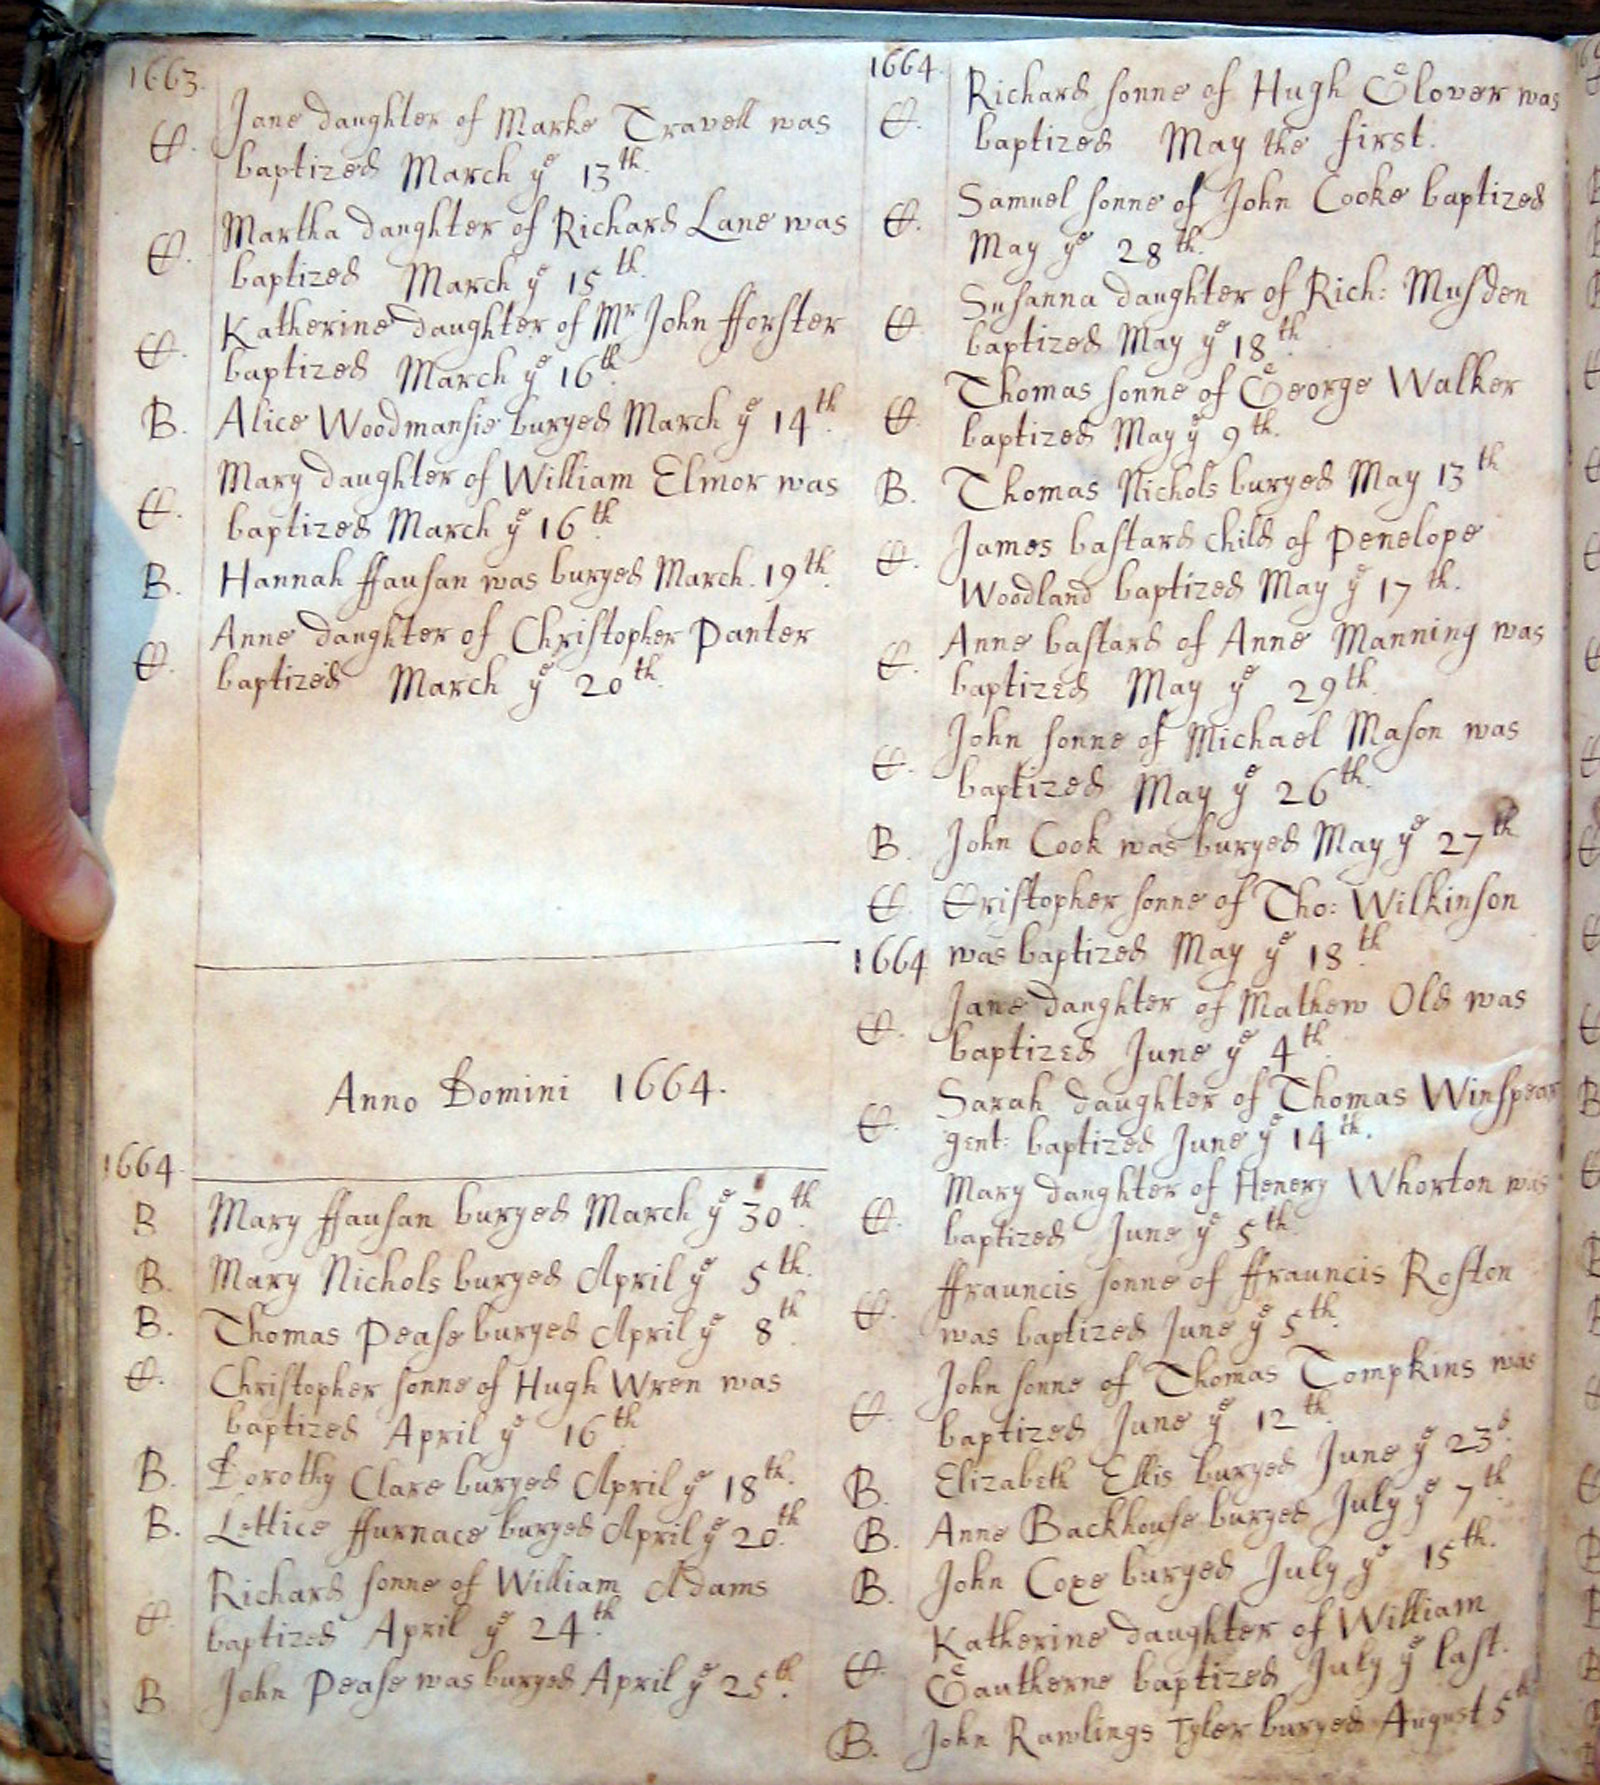 1663.
C. Jane daughter of Marke Travell was
baptized March ye 13th.
C. Martha daughter of Richard Lane was
baptized March ye 15th.
C. Katherine daughter of Mr John fforster
baptized March ye 16th.
B. Alice Woodmansie buryed March ye 14th.
C. Mary daughter of William Elmor was
baptized March ye 16th
B. Hannah ffausan was buryed March. 19th.
C. Anne daughter of Christopher Panter
baptized March ye 20th.
Anno Domini 1664.
1664.
B Mary ffausan buryed March ye 30th.
B. Mary Nichols buryed April ye 5th.
B. Thomas Pease buryed April ye 8th.
C. Christopher sonne of Hugh Wren was
baptized April ye 16th
B. Dorothy Clare buryed April ye 18th.
B. Lettice ffurnace buryed April ye 20th.
C. Richard sonne of William Adams
baptized April ye 24th.
B John Pease was buryed April ye 25th.
1664.
C. Richard sonne of Hugh Glover was
baptized May the first.
C. Samuel sonne of John Cooke baptized
May ye 28th.
C. Susanna daughter of Rich: Musden
baptized May ye 18th.
C. Thomas sonne of George Walker
baptized May ye 9th.
B. Thomas Nichols buryed May 13th
C. James bastard child of Penelope
Woodland baptized May ye 17th.
C. Anne bastard of Anne Manning was
baptized May ye 29th.
C. John sonne of Michael Mason was
baptized May ye 26th.
B. John Cook was buryed May ye 27th
C. Cristopher sonne of Tho: Wilkinson
1664 was baptized May ye 18th.
C. Jane daughter of Mathew Old was
baptized June ye 4th.
C. Sarah daughter of Thomas Winspear
gent: baptized June ye 14th.
C. Mary daughter of Henery Whorton was
baptized June ye 5th.
C. ffrauncis sonne of ffrauncis Roston
was baptized June ye 5th.
C. John sonne of Thomas Tompkins was
baptized June ye 12th.
B. Elizabeth Ellis buryed June ye 23d.
B. Anne Backhouse buryed July ye 7th
B. John Coxe buryed July ye 15th.
C. Katherine daughter of William
Gautherne baptized July ye last.
B. John Rawlings Tyler buryed August 5th